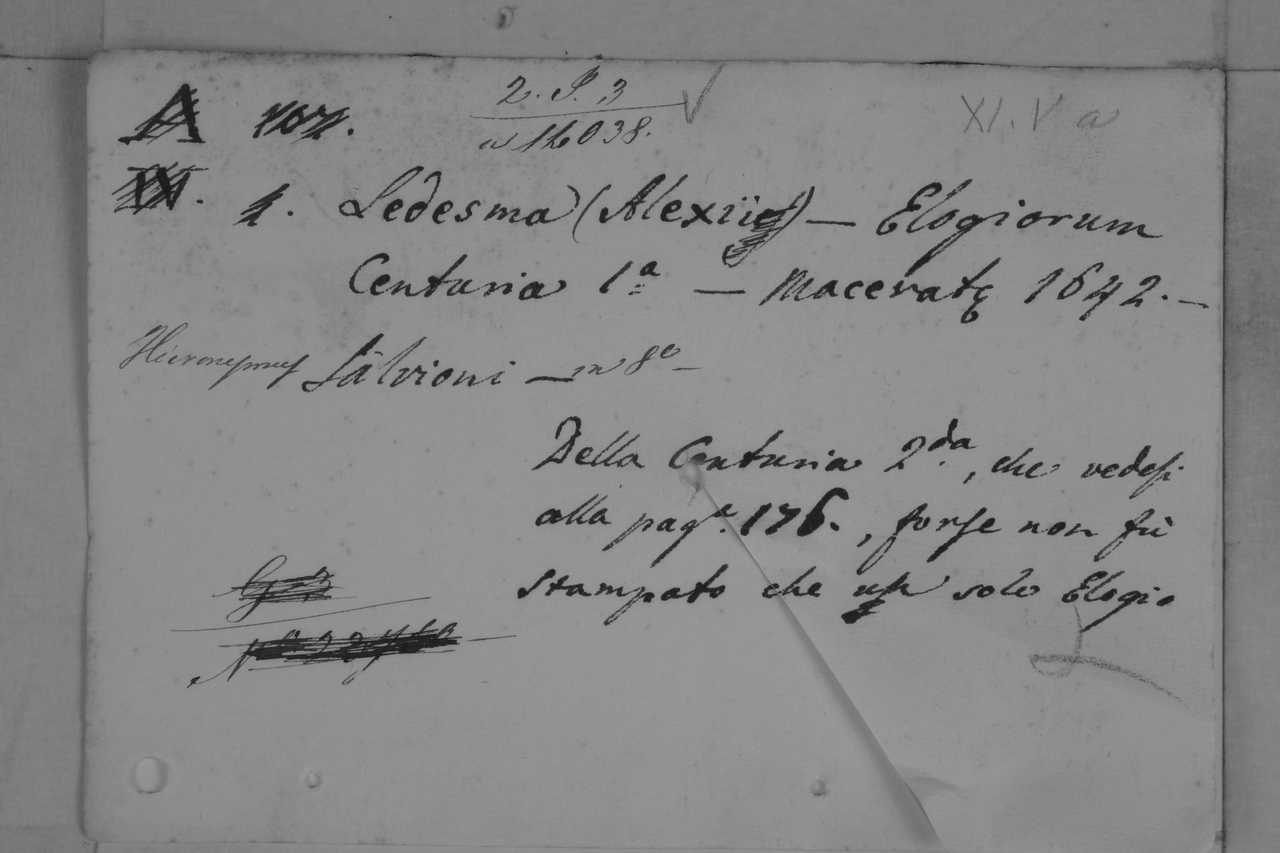 2. P. 3
XI. V a
A
n 16038.
IV. 1. Ledesma (Alexii) — Elogiorum
Centuria 1ª — Maceratę 1642. —
Hieronymus Salvioni — in 8º —
Della Centuria 2.da, che vedesi
alla pagª. 176., forse non fù
stampato che un solo Elogio